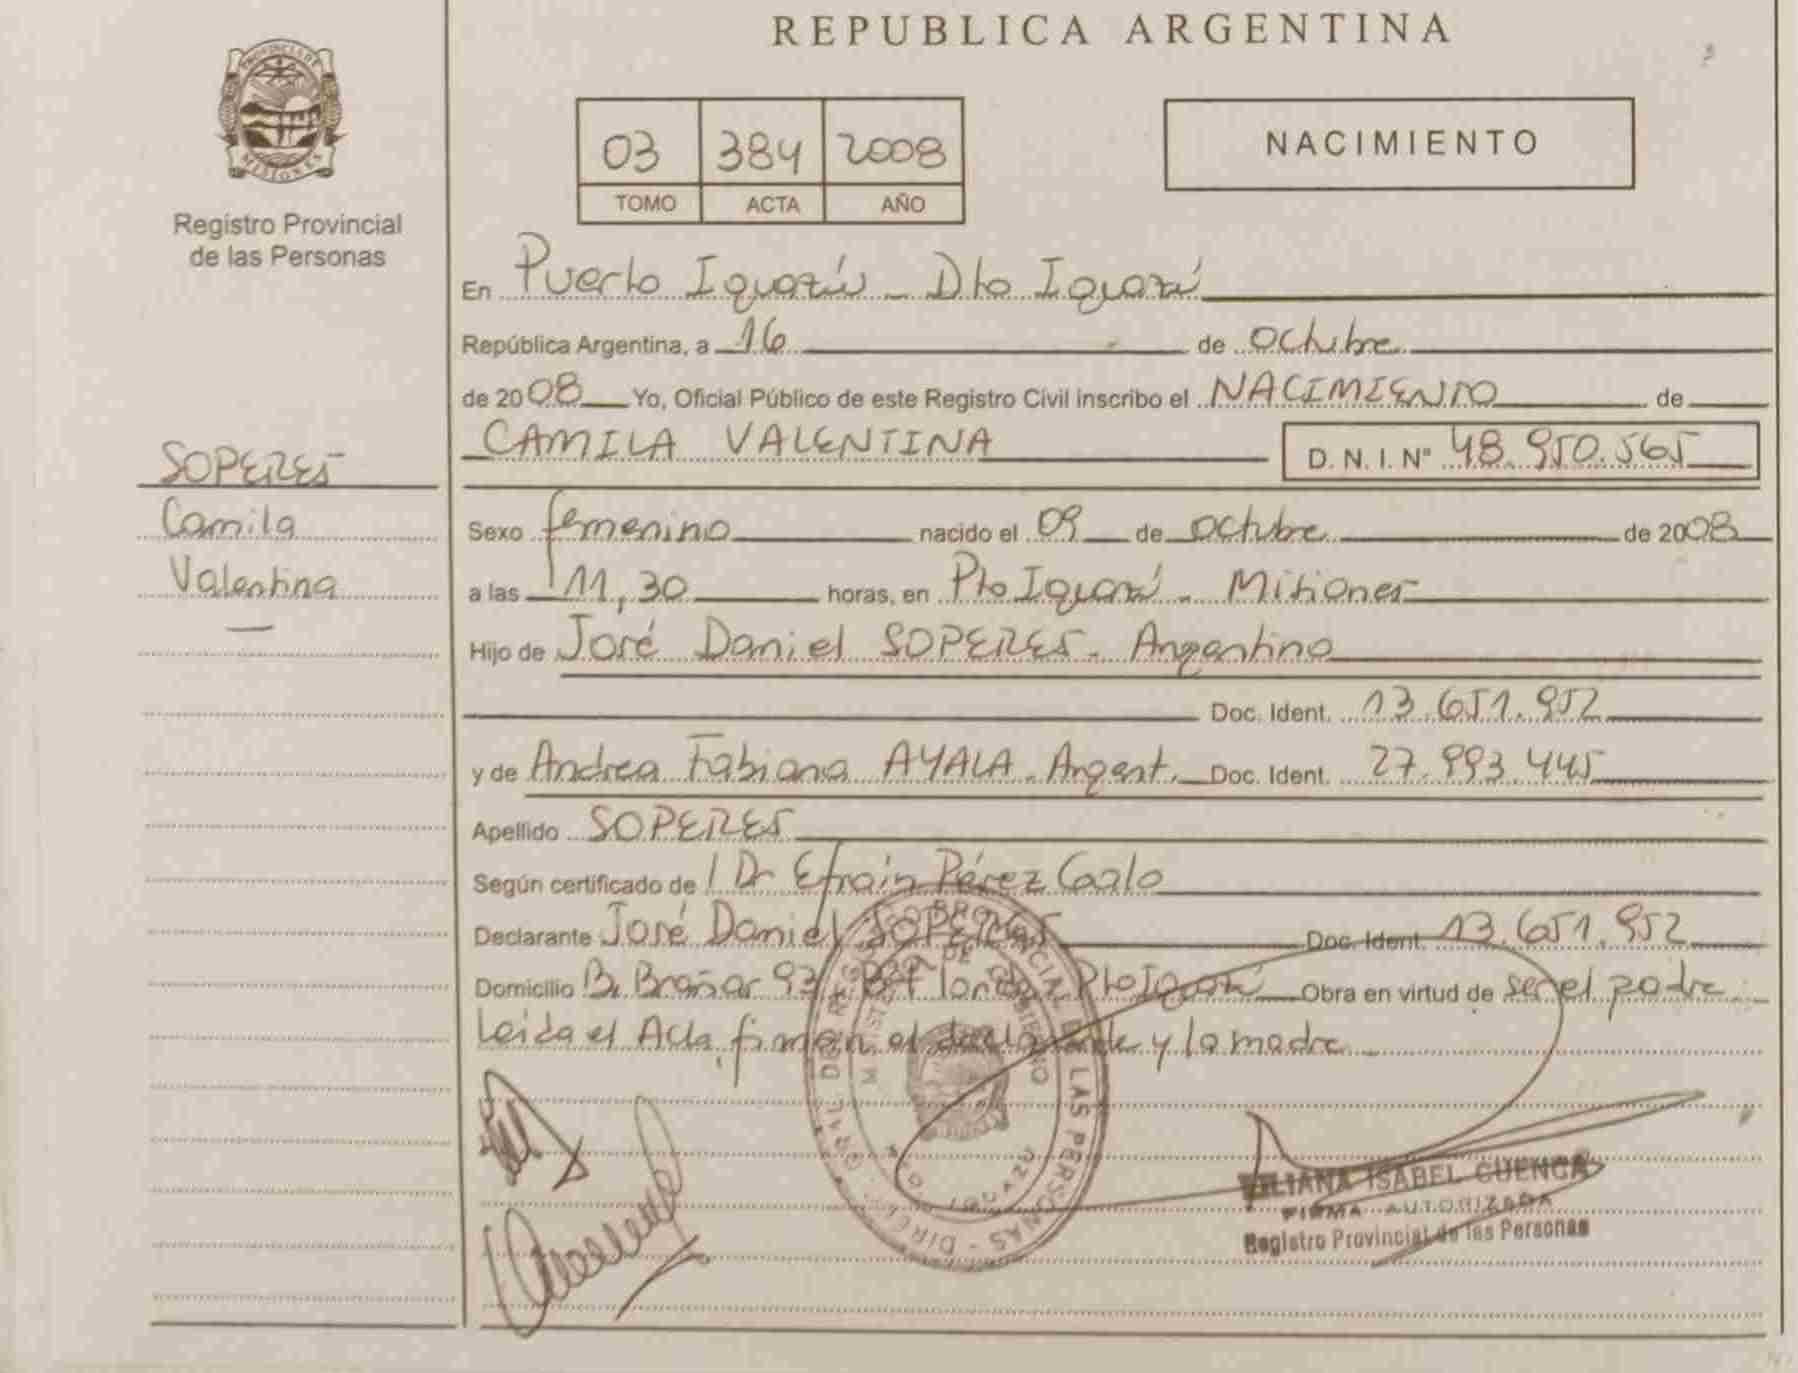 REPUBLICA ARGENTINA
PROVINCIA DE
MISIONES
Registro Provincial
de las Personas
03 384 2008
TOMO ACTA AÑO
NACIMIENTO
En Puerto Iguazú - Dto Iguazú
República Argentina, a 16 de octubre
de 2008 Yo, Oficial Público de este Registro Civil inscribo el NACIMIENTO de
CAMILA VALENTINA D. N. I. N° 48.950.565
SOPERES
Camila
Valentina
Sexo femenino nacido el 09 de octubre de 2008
a las 11,30 horas, en Pto Iguazú - Misiones
Hijo de José Daniel SOPERES - Argentino
Doc. Ident. 13.651.952
y de Andrea Fabiana AYALA - Argent. Doc. Ident. 27.993.445
Apellido SOPERES
Según certificado de / Dr Efraín Pérez
Declarante José Daniel SOPERES Doc. Ident. 13.651.952
Domicilio Bº Brañas 93 Pto Iguazú Obra en virtud de ser el padre
Leída el Acta, firman el declarante y la madre
DIREC GRAL DEL REGISTRO PROVINCIAL DE LAS PERSONAS
MINISTERIO DE GOBIERNO
IGUAZU
LILIANA ISABEL CUENCA
FIRMA AUTORIZADA
Registro Provincial de las Personas